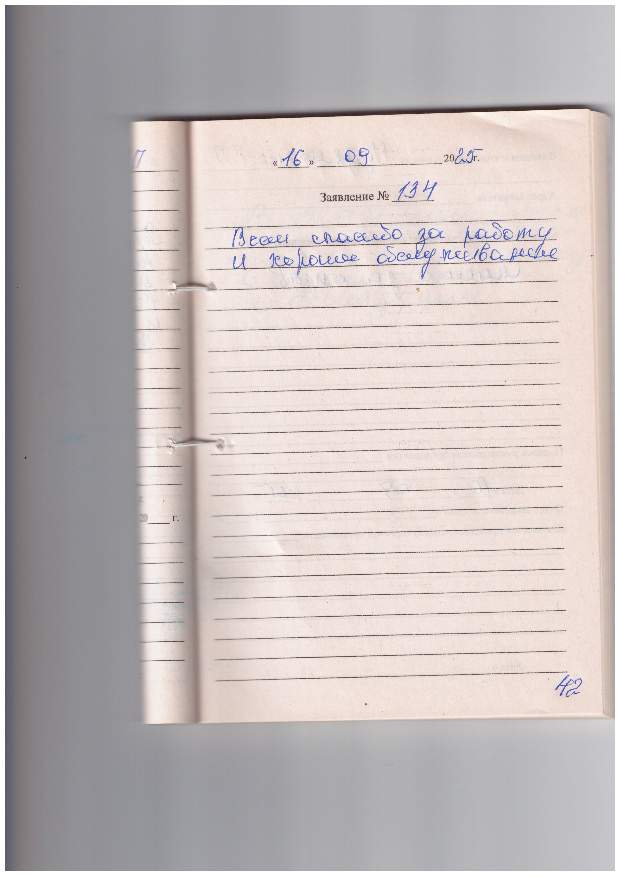 7
« 16 » 09 2025г.
Заявление № 134
Всем спасибо за работу
и хорошее обслуживание
г.
42